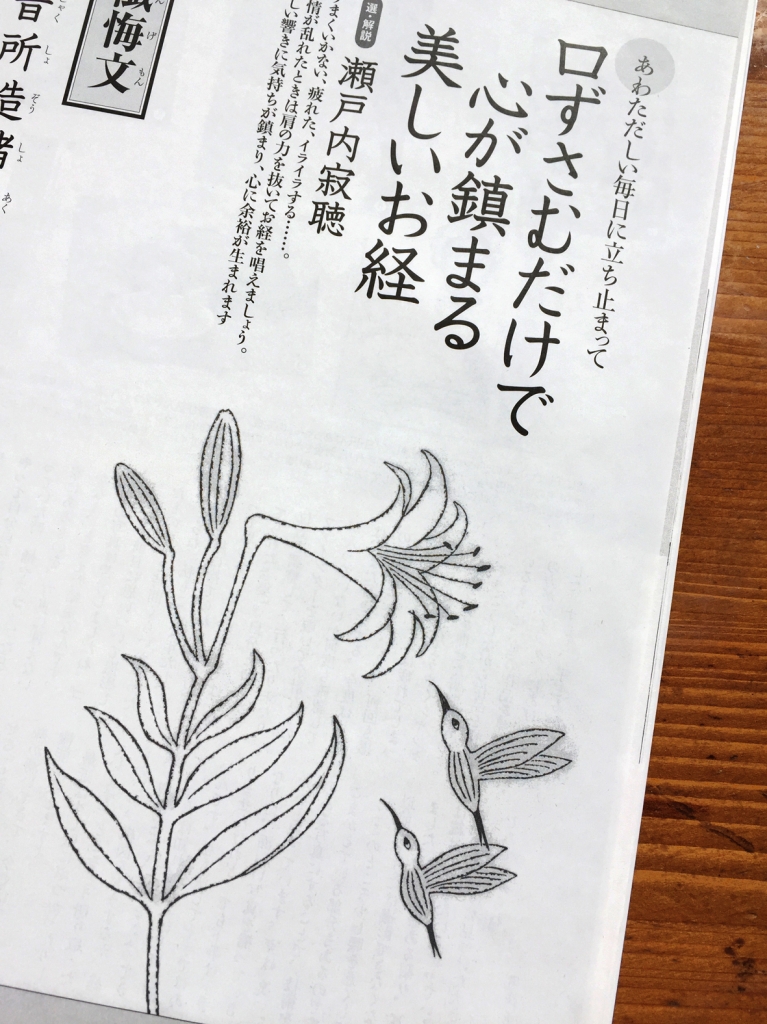 あわただしい毎日に立ち止まって
口ずさむだけで
心が鎮まる
美しいお経
選・解説
瀬戸内寂聴
まくいかない、疲れた、イライラする……。
情が乱れたときは肩の力を抜いてお経を唱えましょう。
しい響きに気持ちが鎮まり、心に余裕が生まれます
懺悔文
んげもん
昔所造諸
ゃくしょぞうしょあく